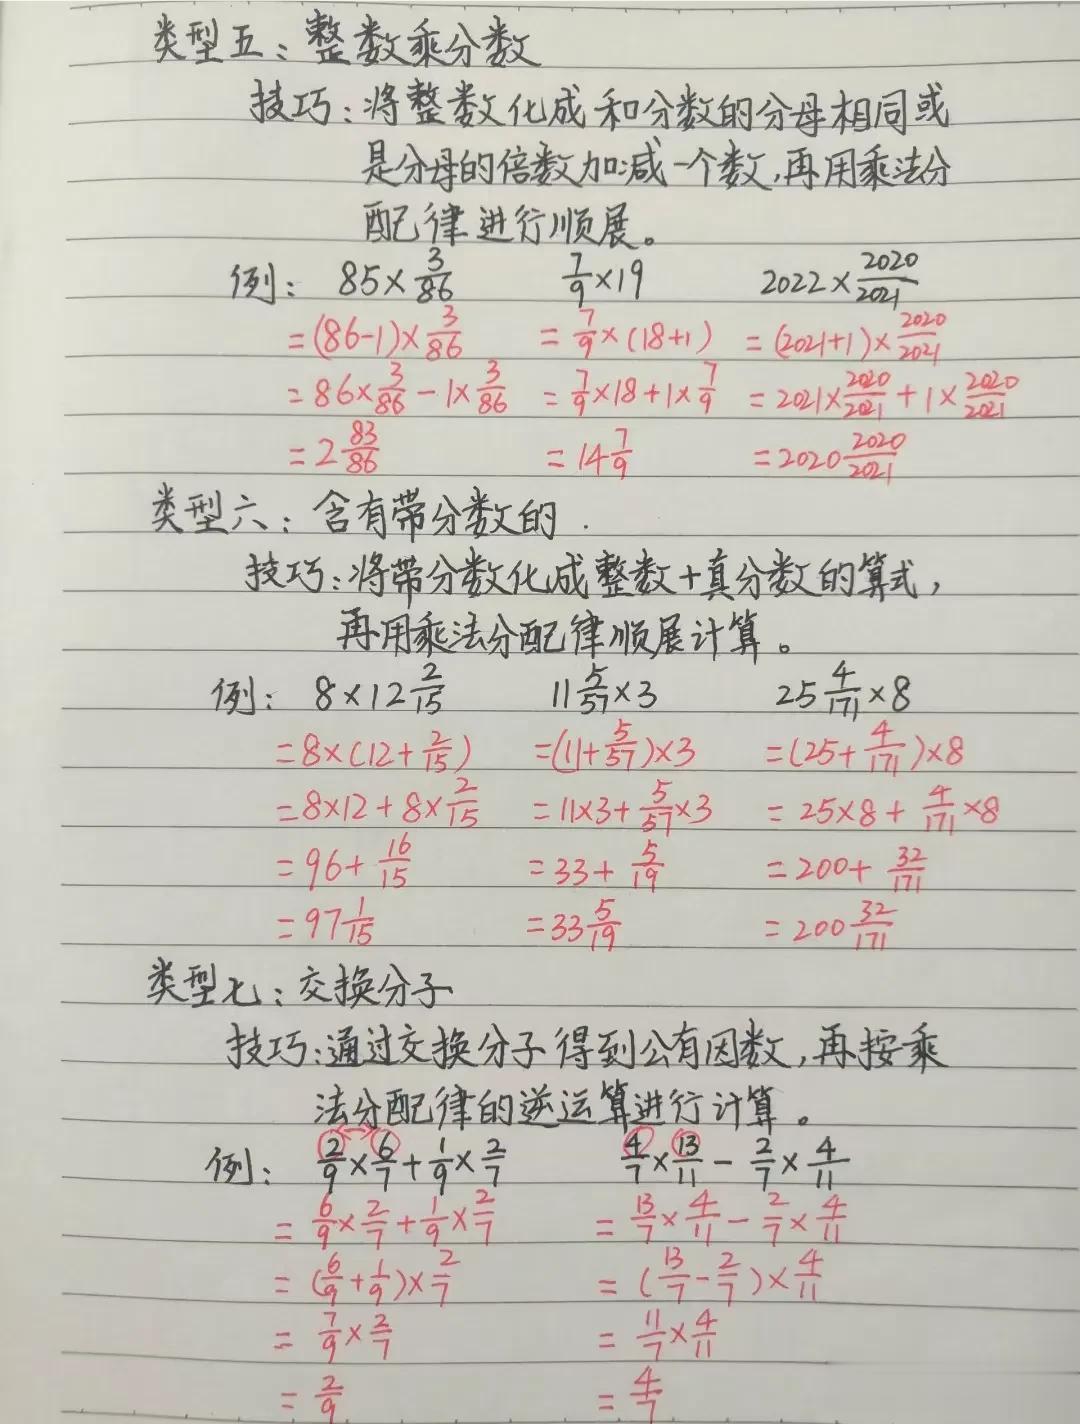 类型五：整数乘分数
技巧：将整数化成和分数的分母相同或
是分母的倍数加减一个数，再用乘法分
配律进行顺展。
例： 85×3/86 7/9×19 2022×2020/2021
=(86-1)×3/86 =7/9×(18+1) =(2021+1)×2020/2021
=86×3/86-1×3/86 =7/9×18+1×7/9 =2021×2020/2021+1×2020/2021
=2 83/86 =14 7/9 =2020 2020/2021
类型六：含有带分数的.
技巧：将带分数化成整数+真分数的算式，
再用乘法分配律顺展计算。
例： 8×12 2/15 11 5/57×3 25 4/171×8
=8×(12+2/15) =(11+5/57)×3 =(25+4/171)×8
=8×12+8×2/15 =11×3+5/57×3 =25×8+4/171×8
=96+16/15 =33+5/19 =200+32/171
=97 1/15 =33 5/19 =200 32/171
类型七：交换分子
技巧：通过交换分子得到公有因数，再按乘
法分配律的逆运算进行计算。
例： 2/9×6/7+1/9×2/7 4/7×13/11-2/7×4/11
=6/9×2/7+1/9×2/7 =13/7×4/11-2/7×4/11
=(6/9+1/9)×2/7 =(13/7-2/7)×4/11
=7/9×2/7 =11/7×4/11
=2/9 =4/7